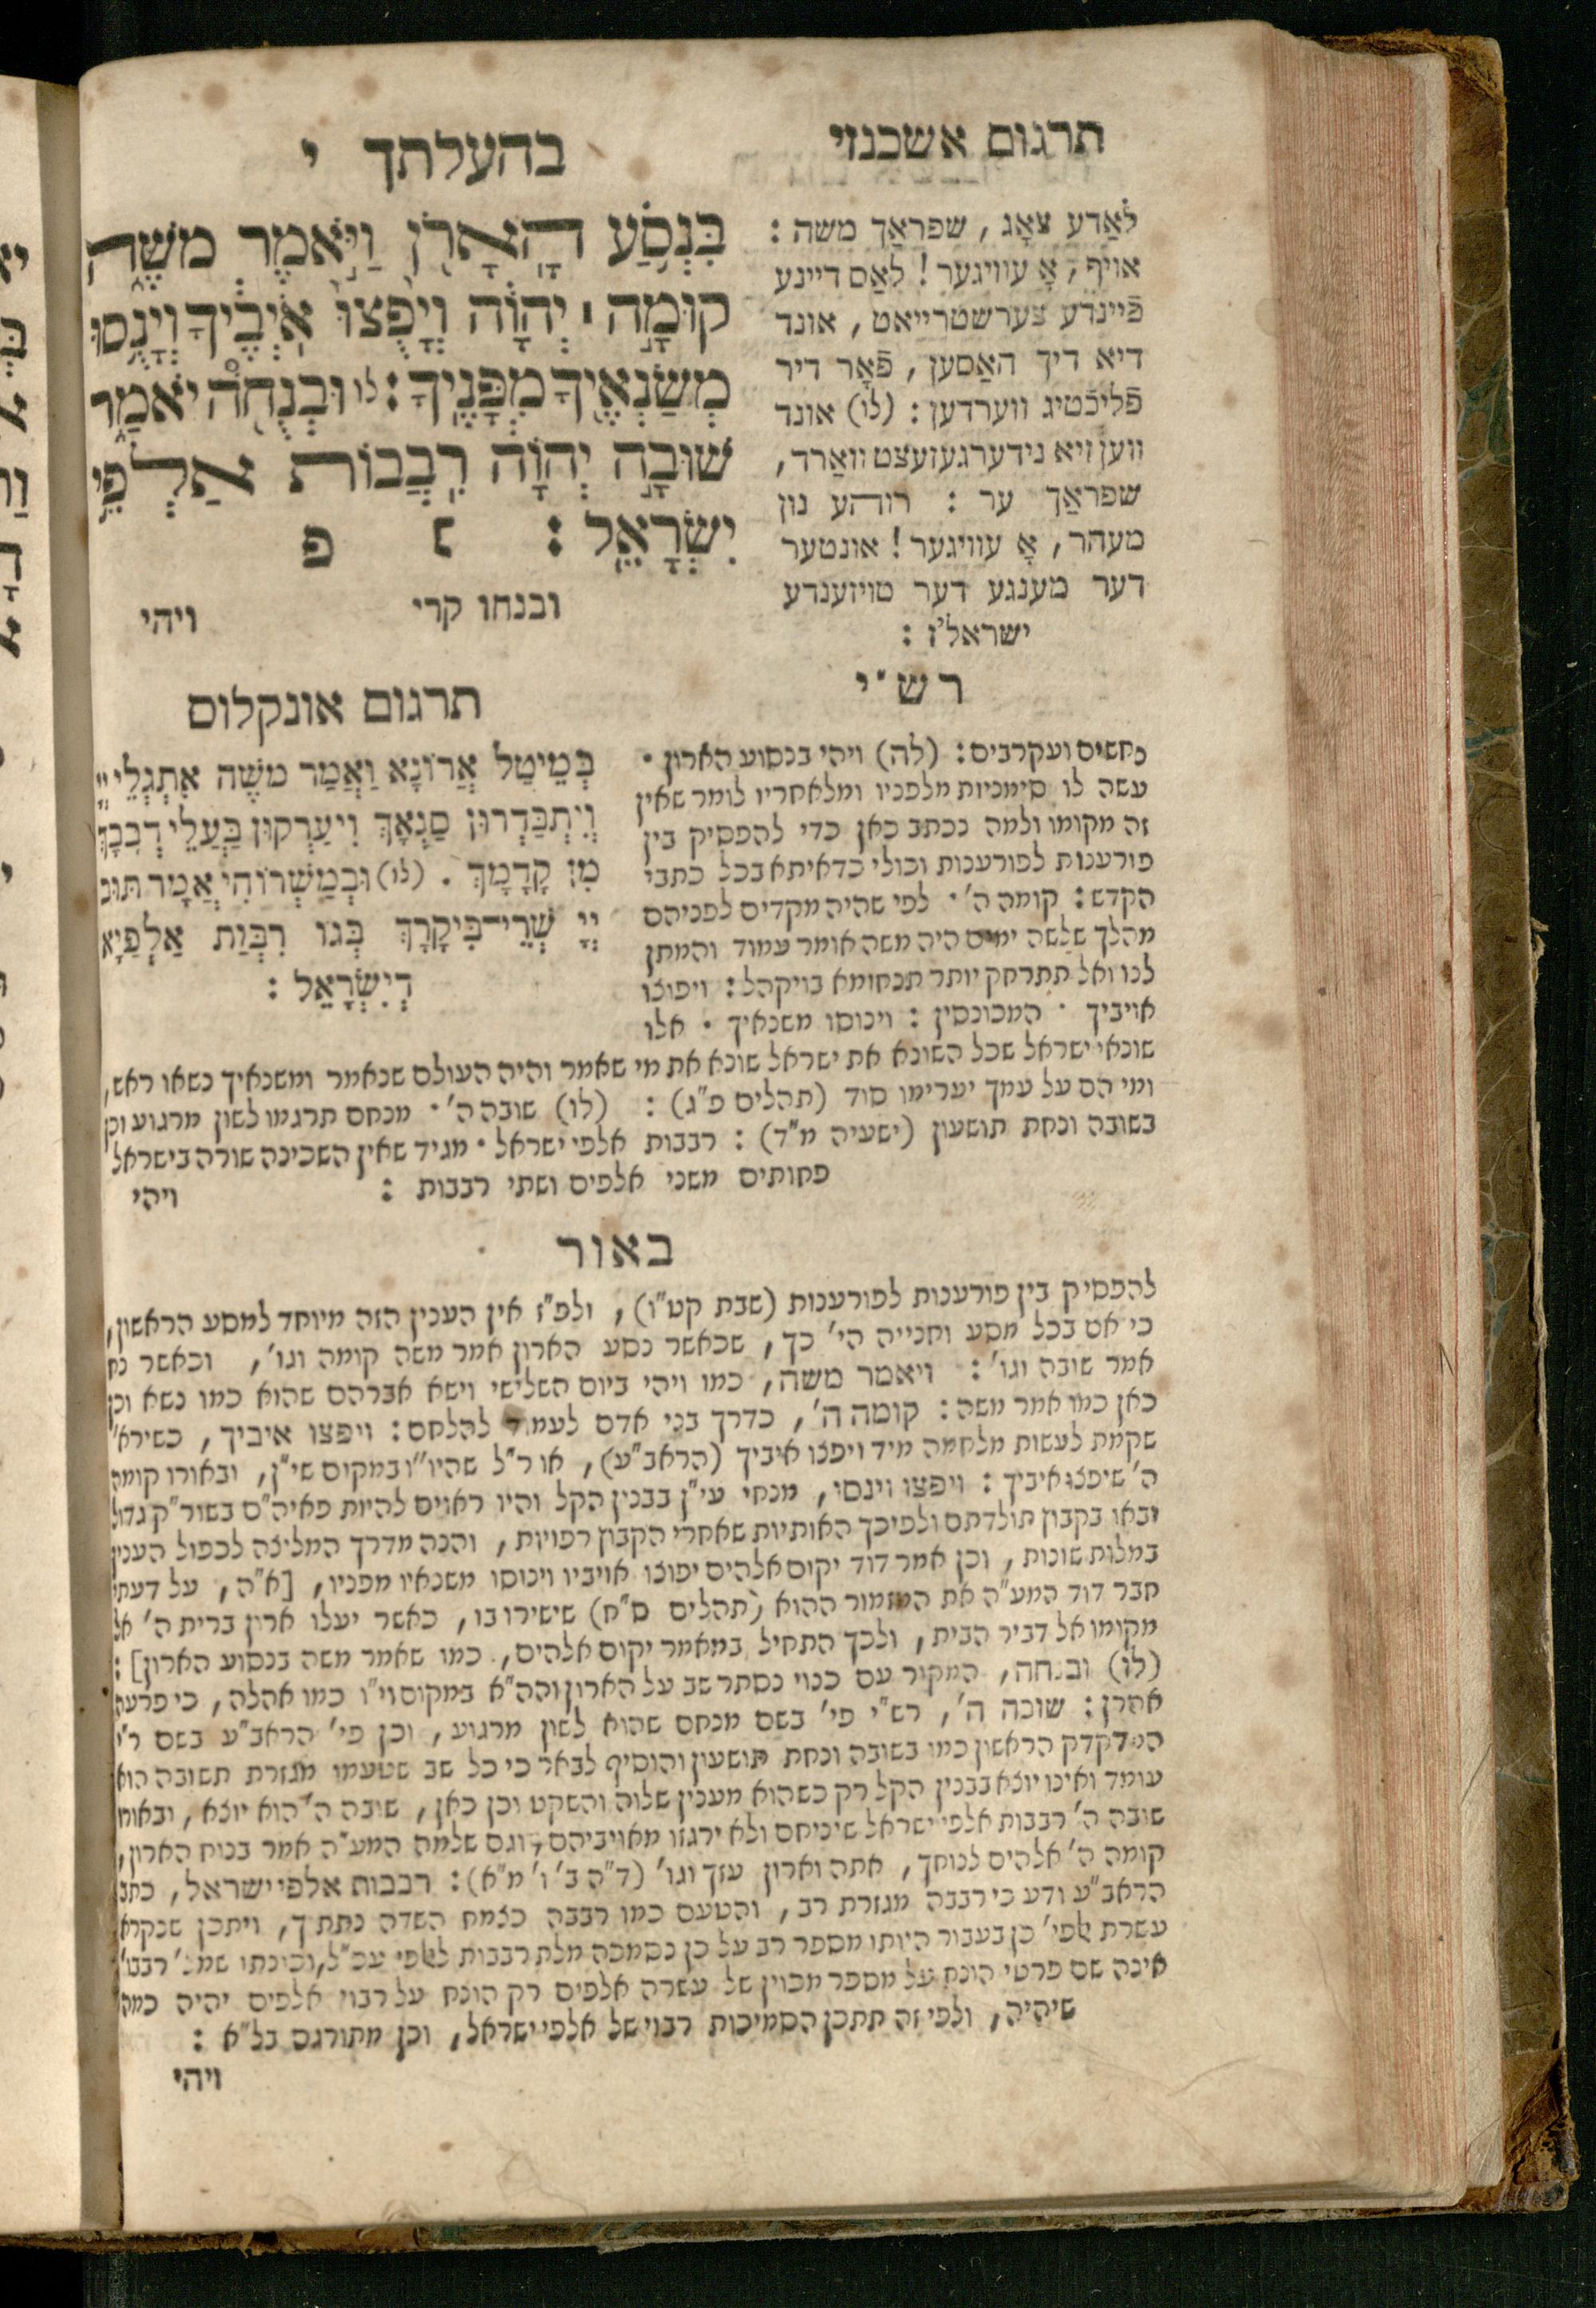 תרגום אשכנזי
בהעלתך י
לאַדע צאָג, שפראַך משה :
אויף, אָ עוויגער! לאַס דיינע
פֿיינדע צערשטרייאט, אונד
דיא דיך האַסען, פֿאָר דיר
פֿליכֿטיג ווערדען : (לו) אונד
ווען זיא נידערגעזעצט וואַרד,
שפראַך ער : רוהע נון
מעהר, אָ עוויגער! אונטער
דער מענגע דער טויזענדע
ישראל'ז :
בִּנְסֹ֥עַ הָאָרֹ֖ן וַיֹּ֣אמֶר מֹשֶׁ֑ה
קוּמָ֣ה ׀ יְהוָ֗ה וְיָפֻ֙צוּ֙ אֹֽיְבֶ֔יךָ וְיָנֻ֥סוּ
מְשַׂנְאֶ֖יךָ מִפָּנֶֽיךָ׃ לו וּבְנֻחֹ֖ה יֹאמַ֑ר
שׁוּבָ֣ה יְהוָ֔ה רִֽבְב֖וֹת אַלְפֵ֥י
יִשְׂרָאֵֽל׃ ׆ פ
ובנחו קרי ויהי
רש"י
נחשים ועקרבים : (לה) ויהי בנסוע הארון ·
עשה לו סימניות מלפניו ומלאחריו לומר שאין
זה מקומו ולמה נכתב כאן כדי להפסיק בין
פורענות לפורענות וכולי כדאיתא בכל כתבי
הקדש : קומה ה' · לפי שהיה מקדים לפניהם
מהלך שלשה ימים היה משה אומר עמוד והמתן
לנו ואל תתרחק יותר תנחומא בויקהל : ויפוצו
אויביך · המכונסין : וינוסו משנאיך · אלו
שונאי ישראל שכל השונא את ישראל שונא את מי שאמר והיה העולם שנאמר ומשנאיך נשאו ראש,
ומי הם על עמך יערימו סוד (תהלים פ"ג) : (לו) שובה ה' · מנחם תרגמו לשון מרגוע וכן
בשובה ונחת תושעון (ישעיה מ"ד) : רבבות אלפי ישראל · מגיד שאין השכינה שורה בישראל
פחותים משני אלפים ושתי רבבות : ויהי
תרגום אונקלוס
בְּמִיטַל אֲרוֹנָא וַאֲמַר מֹשֶׁה אִתְגְּלֵי יְיָ
וְיִתְבַּדְּרוּן סַנְאָךְ וְיַעַרְקוּן בַּעֲלֵי דְבָבָךְ
מִן קֳדָמָךְ . (לו) וּבְמַשְׁרוֹהִי אֲמַר תּוּב
יְיָ שְׁרֵי־בִיקָרָךְ בְּגוֹ רִבְּוַת אַלְפַיָּא
דְיִשְׂרָאֵל :
באור
להפסיק בין פורענות לפורענות (שבת קט"ו), ולפ"ז אין הענין הזה מיוחד למסע הראשון,
כי אם בכל מסע וחנייה הי' כך, שכאשר נסע הארון אמר משה קומה וגו', וכאשר נח
אמר שובה וגו' : ויאמר משה, כמו ויהי ביום השלישי וישא אברהם שהוא כמו נשא וכן
כאן כמו אמר משה : קומה ה', כדרך בני אדם לעמוד להלחם : ויפצו איביך, כשיראו
שקמת לעשות מלחמה מיד ויפצו איביך (הראב"ע), או ר"ל שהיו"ו במקום שי"ן, ובאורו קומה
ה' שיפצו איביך : ויפצו וינסו, מנחי עי"ן בבנין הקל והיו ראוים להיות פאיה"ם בשור"ק גדול
ובאו בקבוץ תולדתם ולפיכך האותיות שאחרי הקבוץ רפויות, והנה מדרך המליצה לכפול הענין
במלות שונות, וכן אמר דוד יקום אלהים יפוצו אויביו וינוסו משנאיו מפניו, [א"ה, על דעתי
חבר דוד המע"ה את המזמור ההוא (תהלים ס"ח) שישירו בו, כאשר יעלו ארון ברית ה' אל
מקומו אל דביר הבית, ולכך התחיל במאמר יקום אלהים, כמו שאמר משה בנסוע הארון] :
(לו) ובנחה, המקור עם כנוי נסתר שב על הארון והה"א במקום וי"ו כמו אהלה, כי פרעה
אהרן : שובה ה', רש"י פי' בשם מנחם שהוא לשון מרגוע, וכן פי' הראב"ע בשם ר"י
המדקדק הראשון כמו בשובה ונחת תושעון והוסיף לבאר כי כל שב שטעמו מגזרת תשובה הוא
עומד ואינו יוצא בבנין הקל רק כשהוא מענין שלוה והשקט וכן כאן, שובה ה' הוא יוצא, ובאורו
שובה ה' רבבות אלפי ישראל שיניחם ולא ירגזו מאויביהם, וגם שלמה המע"ה אמר בנוח הארון,
קומה ה' אלהים לנוחך, אתה וארון עזך וגו' (ד"ה ב' ו' מ"א) : רבבות אלפי ישראל, כתב
הראב"ע ודע כי רבבה מגזרת רב, והטעם כמו רבבה כצמח השדה נתתיך, ויתכן שנקרא
עשרת אלפי' כן בעבור היותו מספר רב על כן נסמכה מלת רבבות לאלפי עכ"ל, וכונתו שמל' רבבו'
אינה שם פרטי הונח על מספר מכוין של עשרה אלפים רק הונח על רבוי אלפים יהיה כמה
שיהיה, ולפי זה תתכן הסמיכות רבוי של אלפי ישראל, וכן מתורגם בל"א :
ויהי